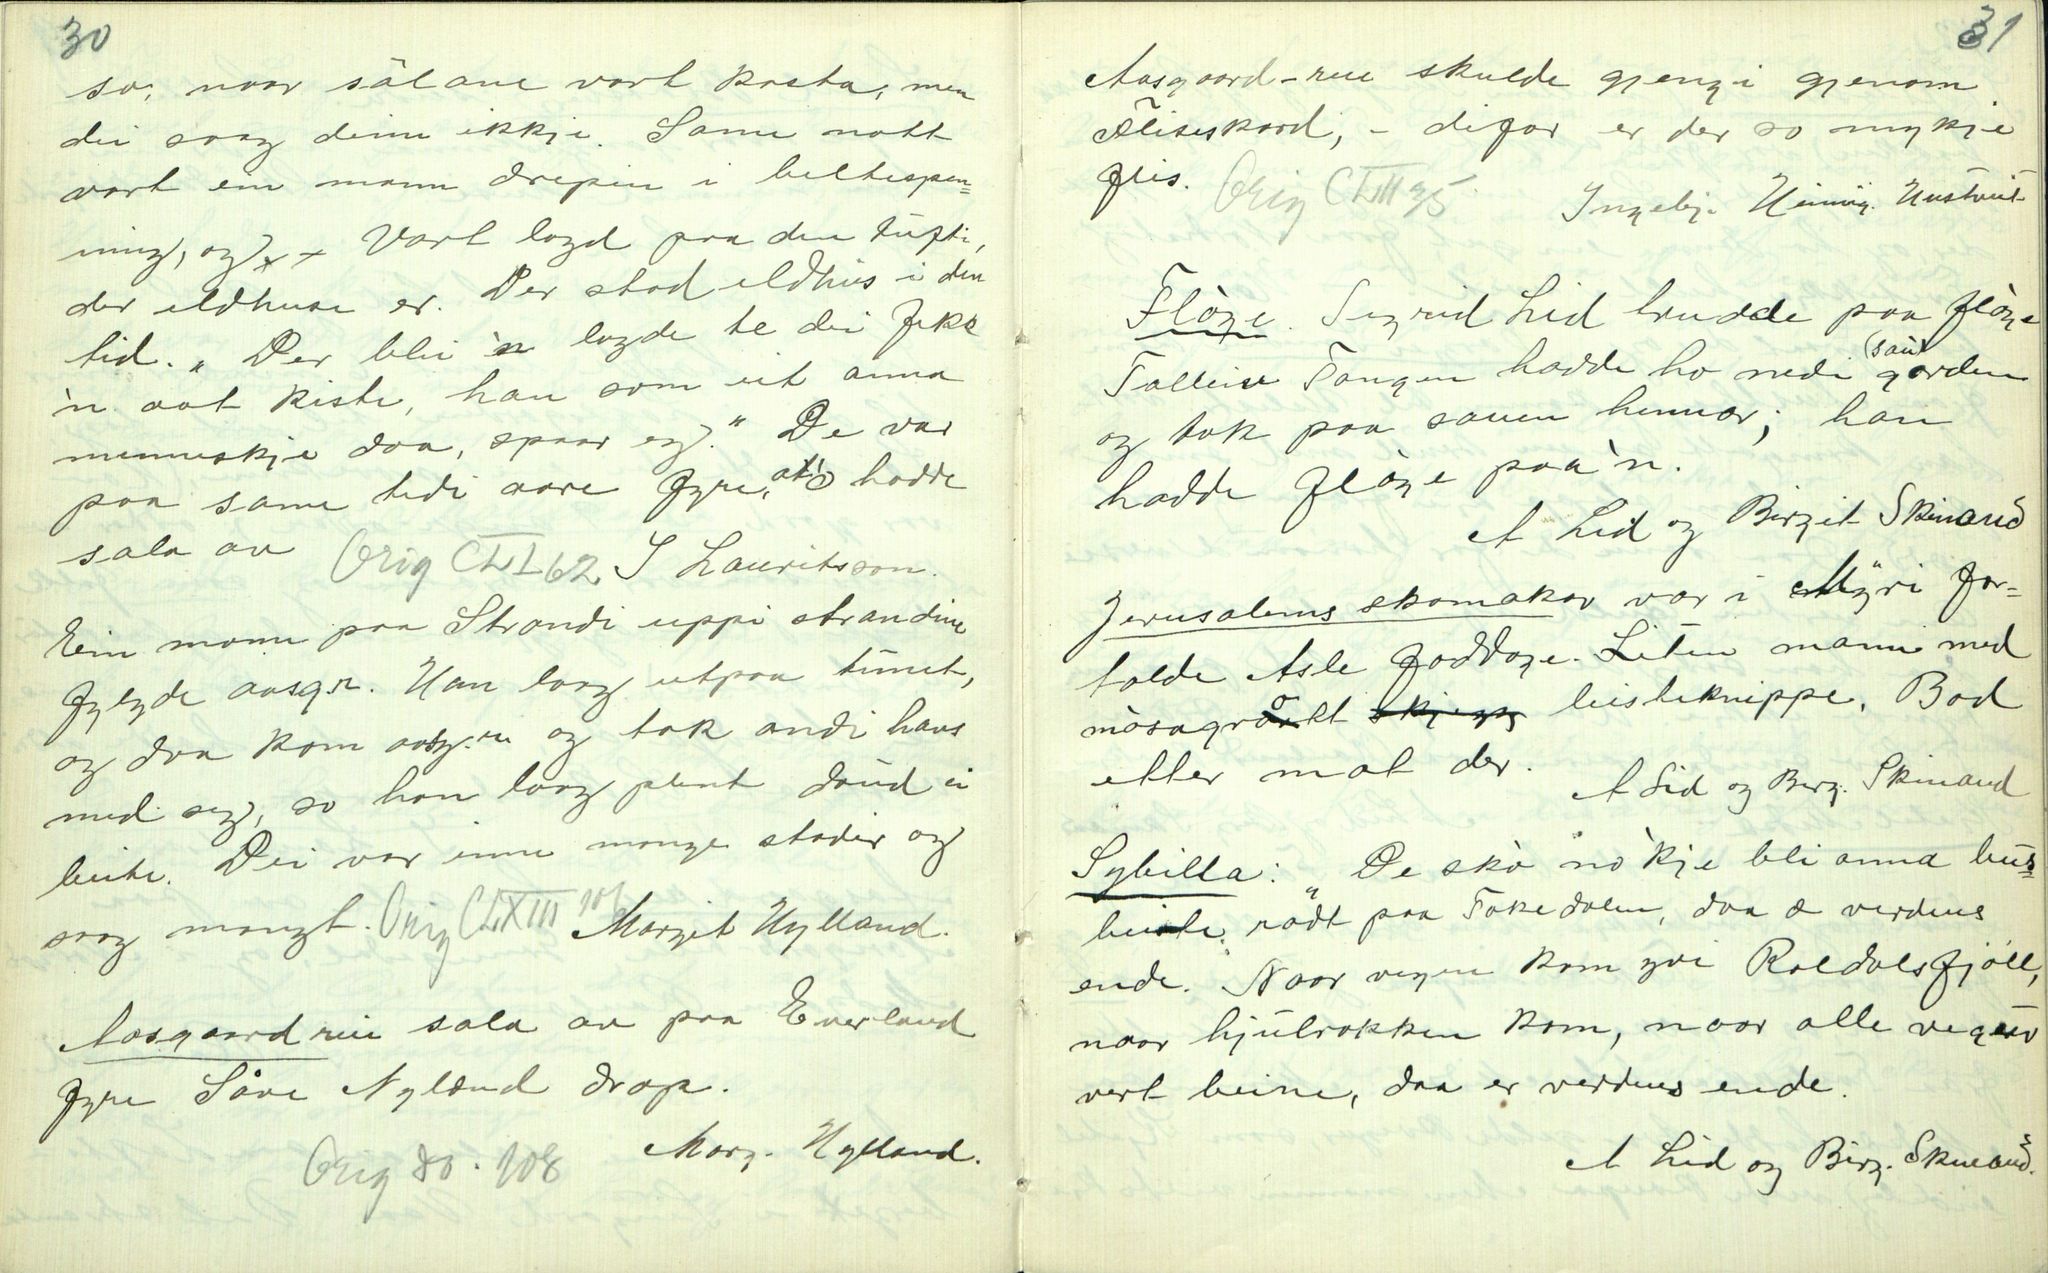 30
so, naar sålane vart kasta, men
dei saag deim ikkje. Same nott
vart ein mann drepin i beltespen=
ning, og xx Vart lagd paa den tufti,
der eldhuse er. Der stod eldhus i den
tid. „Der blei 'n lagde te dei fekk
'n aat kiste, han som eit anna
menneskje daa, spaar eg." De var
paa same tidi aare fyre, at'o hadde
sala av Orig CLI 62. S Lauritsson.
Ein mann paa Strondi uppi strandine
fylgde aasg.r. Han laag utpaa tunet,
og daa kom aasg.rei og tok andi hans
med seg, so han laag plent daud ei
beite. Dei var inne mange stadir og
saag mangt. Orig CLXIII 106 Margit Hylland.
Aasgaardrei sala av paa Everland
fyre Såve Nyland drap.
Orig 80. 108 Marg. Hylland.
31
Aasgaard-rei skulde gjengi gjenom
Fliseskard, - difor er der so mykje
flis. Orig CLIII 35 Ingebj. Heinig. Hustveit
Flòge. Sigrid Lid trudde paa flòge
Talleiv Tangen hadde ho nedi (sau)garden
og tok paa sauen hennar; han
hadde flòge paa'n.
A Lid og Birgit Skinand
Jerusalems skomakar var i Myri for=
talde Asle Joddøge. Liten mann med
mosagrått skjegg leisteknippe. Bad
etter mat der. A Lid og Birg. Skinand
Sybilla: „De skò nò'kje bli anna bus=
beite rødt paa Tokedalen, daa æ verdens
ende. Naar vegen kom yvi Røldalsfjöll,
naar hjulrokken kom, naar alle vegar
vert beine, daa er verdens ende.
A Lid og Birg. Skinand.